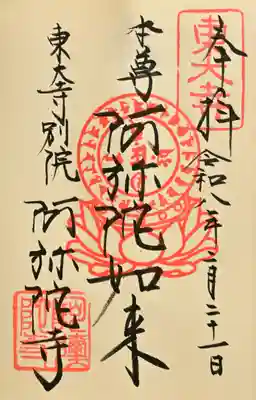 奉拝 令和八年二月二十一日
本尊 阿弥陀如来
東大寺別院 阿弥陀寺
東大寺